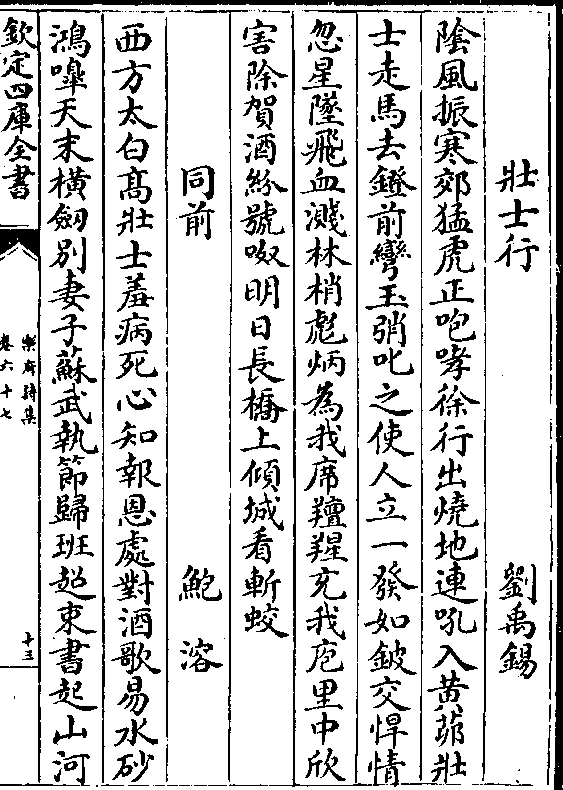 壯士行　劉禹錫
隂風振寒郊猛虎正咆哮徐行出燒地連吼入黄茆壯
士走馬去鐙前彎玉弰叱之使人立一發如鈹交悍情
忽星墜飛血濺林梢彪炳為我席羶腥充我庖里中欣
害除賀酒紛號呶明日長橋上傾城看斬蛟
同前　鮑溶
西方太白髙壯士羞病死心知報恩處對酒歌易水砂
鴻嘷天末横劒别妻子蘇武執節歸班超束書起山河
欽定四庫全書
樂府詩集
卷六十七
十三